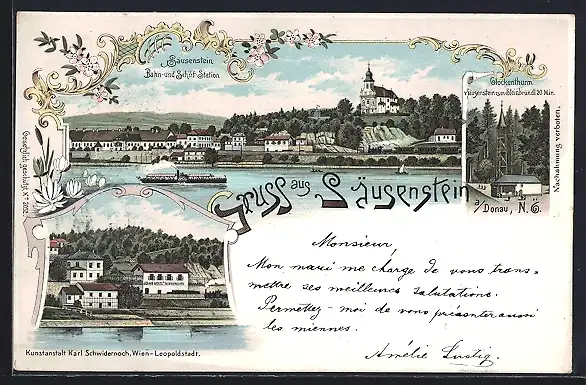 Säusenstein
Bahn- und Schiff-Station
Glockenthurm
v. Säusenstein zum Steinbründl 20 Min.
Nachahmung verboten.
Gesetzlich geschützt
Gruss aus Säusenstein
a/Donau, N.Ö.
Monsieur,
Mon mari me charge de vous trans=
mettre ses meilleures salutations.
Permettez-moi de vous présenter aussi
les miennes.
Amélie Lustig.
Kunstanstalt Karl Schwidernoch, Wien-Leopoldstadt.